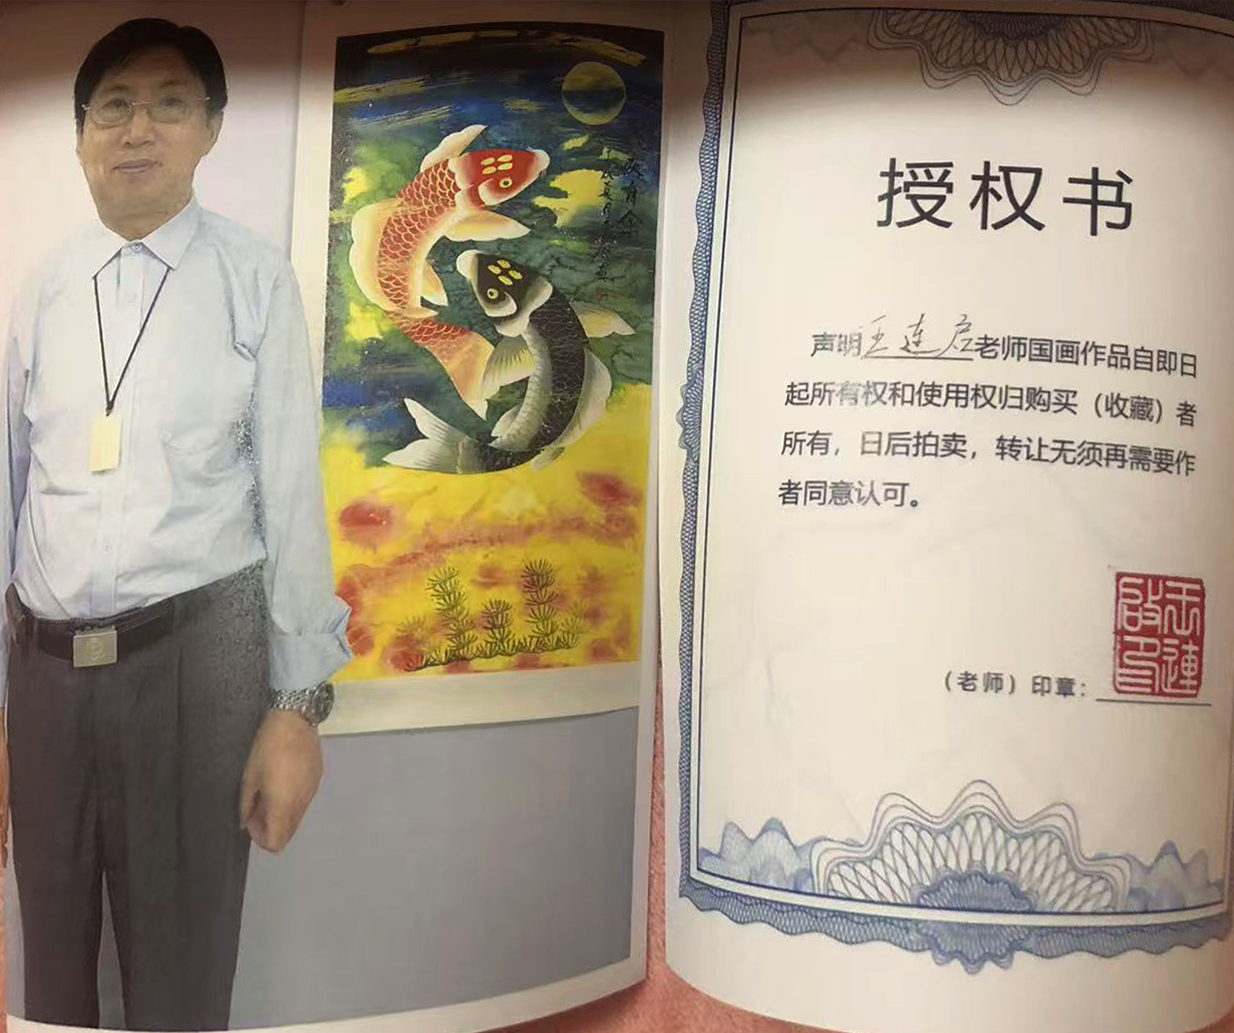 授权书
声明王连启老师国画作品自即日
起所有权和使用权归购买（收藏）者
所有，日后拍卖，转让无须再需要作
者同意认可。
（老师）印章：
王連
啟印